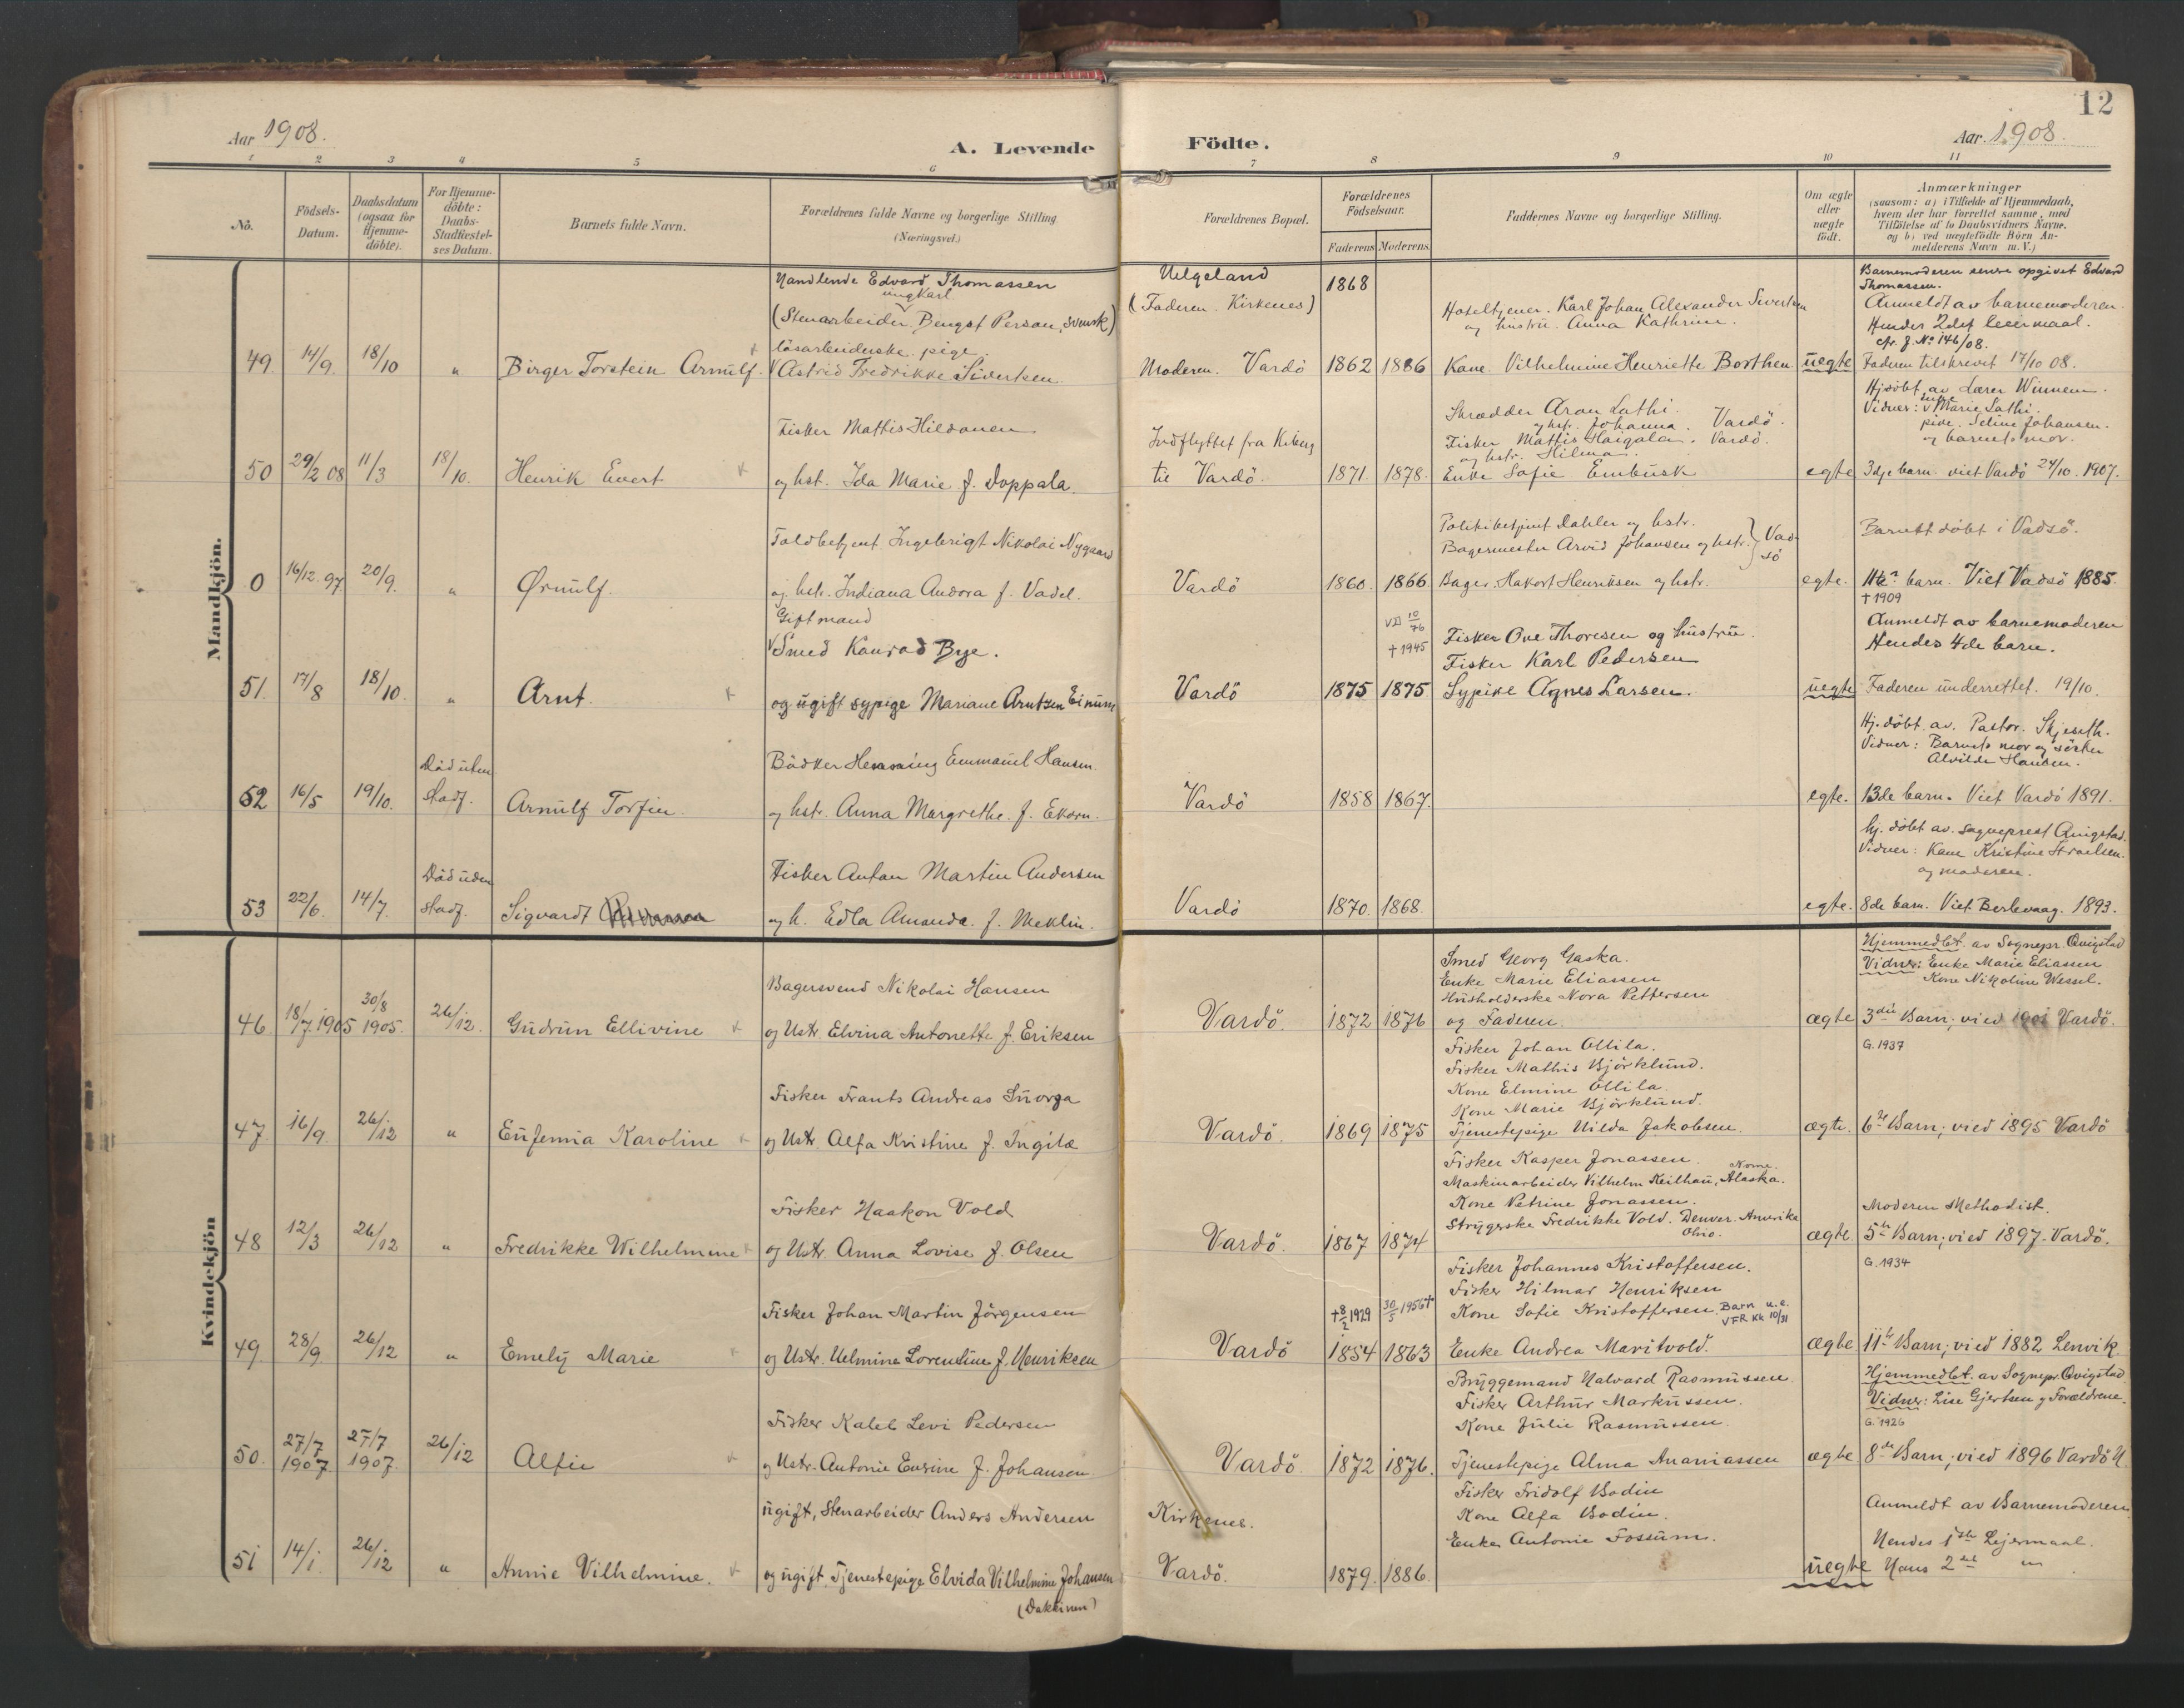 12
Aar 1908.
A. Levende Födte.
Aar 1908.
1 2 3 4 5 6 7 8 9 10 11
No.
Födsels-
Datum.
Daabsdatum
(ogsaa for
Hjemme-
döbte).
For Hjemme-
döbte:
Daabs-
Stadfæstel-
ses Datum.
Barnets fulde Navn.
Forældrenes fulde Navne og borgerlige Stilling
(Næringsvei.)
Forældrenes Bopæl.
Forældrenes
Födselsaar.
Faderens Moderens
Faddernes Navne og borgerlige Stilling.
Om ægte
eller
uægte
födt.
Anmærkninger
(saasom: a) i Tilfælde af Hjemmedaab,
hvem der har forrettet samme, med
Tilföielse af to Daabsvidners Navne.
og b) ved uægtefödte Börn An-
melderens Navn m. V.)
Mandkjön.
49. 14/9. 18/10 " Birger Torstein Arnulf.
Handlende Edvard Thomassen
ungkarl
(Stenarbeider Bengst Person, svensk)
lösarbeiderske pige
Astrid Fredrikke Sivertsen.
Helgeland
(Faderen. Kirkenes)
Moderen. Vardö
1868
1862 1886
Hoteltjener. Karl Johan Alexander Sivertsen
og hustru. Anna Kathrine.
Kone Vilhelmine Henriette Borthen
uegte
Barnemoderen senere opgivet Edvard
Thomassen.
Anmeldt av barnemoderen.
Hendes 2det leiermaal.
cfr. J. No 146/08.
Faderen tilskrevet 17/10 08.
50 29/2 08 11/3 18/10. Henrik Evert
Fisker Mattis Hildonen
og hst. Ida Marie f. Doppala.
Indflyttet fra Kiberg
til Vardö.
1871. 1878.
Skrædder Aron Lathi.
og hst. Johanna. Vardö.
Fisker Mattis Haigola. Vardö.
og hstr. Hilma.
Enke Sofie Embusk
egte
Hjdöbt av Lærer Winnem.
Vidner: Enke Marie Lathi.
pike. Seline Johansen.
og barnets mor.
3dje barn. viet Vardö 24/10. 1907.
0 16/12. 97. 20/9. " Ørnulf.
Toldbetjent Ingebrigt Nikolai Nygaard
og hstr. Indiana Andora f. Vadel.
Vardö
1860. 1866
Politibetjent Dahler og hstr.
Bagermester Arvid Johansen og hstr. } Vad-
sö
Bager. Hakort Henriksen og hstr.
egte.
Barnet döbt i Vadsö.
11te barn. Viet Vadsö 1885.
† 1909
51. 17/8 18/10. " Arnt.
Gift mand
Smed Konrad Bye.
og ugift sypige Mariane Arntzen Einum
Vardö
VD 10/76
† 1945
1875 1875
Fisker Ove Thoresen og hustru.
Fisker Karl Pedersen
Sypike Agnes Larsen.
uegte
Anmeldt av barnemoderen
Hendes 4de barn.
Faderen underrettet. 19/10.
52 16/5 19/10. Död uten
stadf.
Arnulf Torfin.
Bödker Henning Emmanuel Hansen.
og hst. Anna Margrethe. f. Ekorn.
Vardö
1858 1867.
egte.
Hj. döbt. av. Pastor. Skjeseth.
Vidner: Barnets mor og söster
Alvilde Hansen.
13de barn. Viet Vardö 1891.
53 22/6. 14/7. Död uden
stadf.
Sigvardt
Fisker Anton Martin Andersen
og h. Edla Amanda. f. Meklin.
Vardö
1870. 1868.
egte.
hj. döbt av. sogneprest Qvigstad.
Vidner: Kone Kristine Stroelsen.
og moderen.
8de barn. Viet Berlevaag. 1893.
Kvindekjön
46 18/7. 1905 30/8 1905. 26/12. Gudrun Ellivine
Bagersvend Nikolai Hansen
og Hstr. Elvina Antonette f. Eriksen
Vardö.
1872 1876
Smed Georg Gaska.
Enke Marie Eliassen
Husholderske Nora Pettersen
og Faderen.
ægte
Hjemmedöbt. av Sognepr. Qvigstad
Vidner: Enke Marie Eliassen
Kone Nikoline Wessel.
3die Barn; vied 1901 Vardö.
G. 1937
47. 16/9. 26/12 " Eufemia Karoline
Fisker Frants Andreas Snorga
og Hstr. Alfa Kristine f. Ingilæ
Vardö.
1869 1875
Fisker Johan Ollila.
Fisker Mathis Björklund.
Kone Elmine Ollila.
Kone Marie Björklund.
Tjenestepige Hilda Jakobsen.
ægte.
6te Barn; vied 1895 Vardö
48 12/3 26/12 " Fredrikke Wilhelmine
Fisker Haakon Vold
og Hstr. Anna Lovise f. Olsen
Vardö.
1867 1874
Fisker Kasper Jonassen.
Maskinarbeider Vilhelm Keilhau, Nome. Alaska.
Kone Petrine Jonassen.
Strygerske Fredrikke Vold. Denver. Amerika
Ohio.
ægte.
Moderen Methodist.
5te Barn; vied 1897 Vardö.
G. 1934
49 28/9. 26/12 " Emely Marie
Fisker Johan Martin Jörgensen
og Hstr. Helmine Lorentine f. Henriksen
Vardö
† 8/2 1929 30/5 1956 †
1854 1863
Fisker Johannes Kristoffersen.
Fisker Hilmar Henriksen
Kone Sofie Kristoffersen. Barn u.e.
VFR Kk 10/31
Enke Andrea Maritvold.
ægte
11te Barn; vied 1882 Lenvik
50. 27/7 1907. 27/7 1907. 26/12 Alfie
Fisker Kaleb Levi Pedersen
og Hstr. Antonie Eurine f. Johansen
Vardö.
1872 1876.
Bryggemand Halvard Rasmussen.
Fisker Arthur Markussen.
Kone Julie Rasmussen.
Tjenestepige Alma Ananiassen
ægte
Hjemmedöbt. av Sognepr. Qvigstad
Vidner: Line Gjertsen og Forældrene.
G. 1926
8de Barn; vied 1896 Vardö
51 14/1. 26/12 " Annie Vilhelmine.
ugift, Stenarbeider Anders Andersen
og ugift Tjenestepige Elvida Vilhelmine Johansen
(Dakkinen)
Kirkenes.
Vardö.
1879. 1886.
Fisker Fridolf Bodin
Kone Alfa Bodin.
Enke Antonie Fossum.
uegte
Anmeldt av Barnemoderen
Hendes 1ste Lejermaal.
Hans 2det "